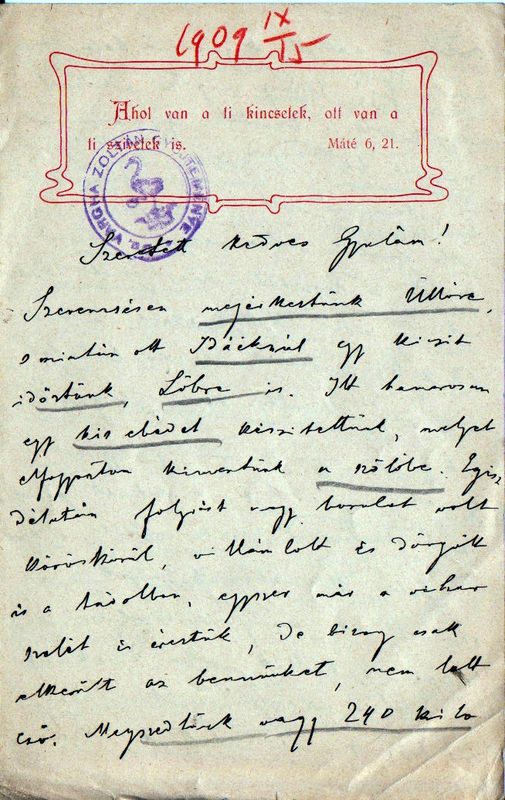 1909 IX/15
Ahol van a ti kincsetek, ott van a
ti szivetek is. Máté 6, 21.
VARGHA ZOLTÁN GYŰJTEMÉNYE
Szeretett kedves Gyulám!
Szerencsésen megérkeztünk Üllőre,
s miután ott Idáéknál egy kicsit
időztünk, Lőbre is. Itt hamarosan
egy kis ebédet készitettünk, melyet
elfogyasztva kimentünk a szőlőbe. Egész
délután folyást nagy borulat volt
köröskörül, villámlott és dörgött
is a távolban, egyszer már a vihar
szelét is éreztük, de bizony csak
elkerült az bennünket, nem lett
eső. Megszedtünk vagy 240 kiló